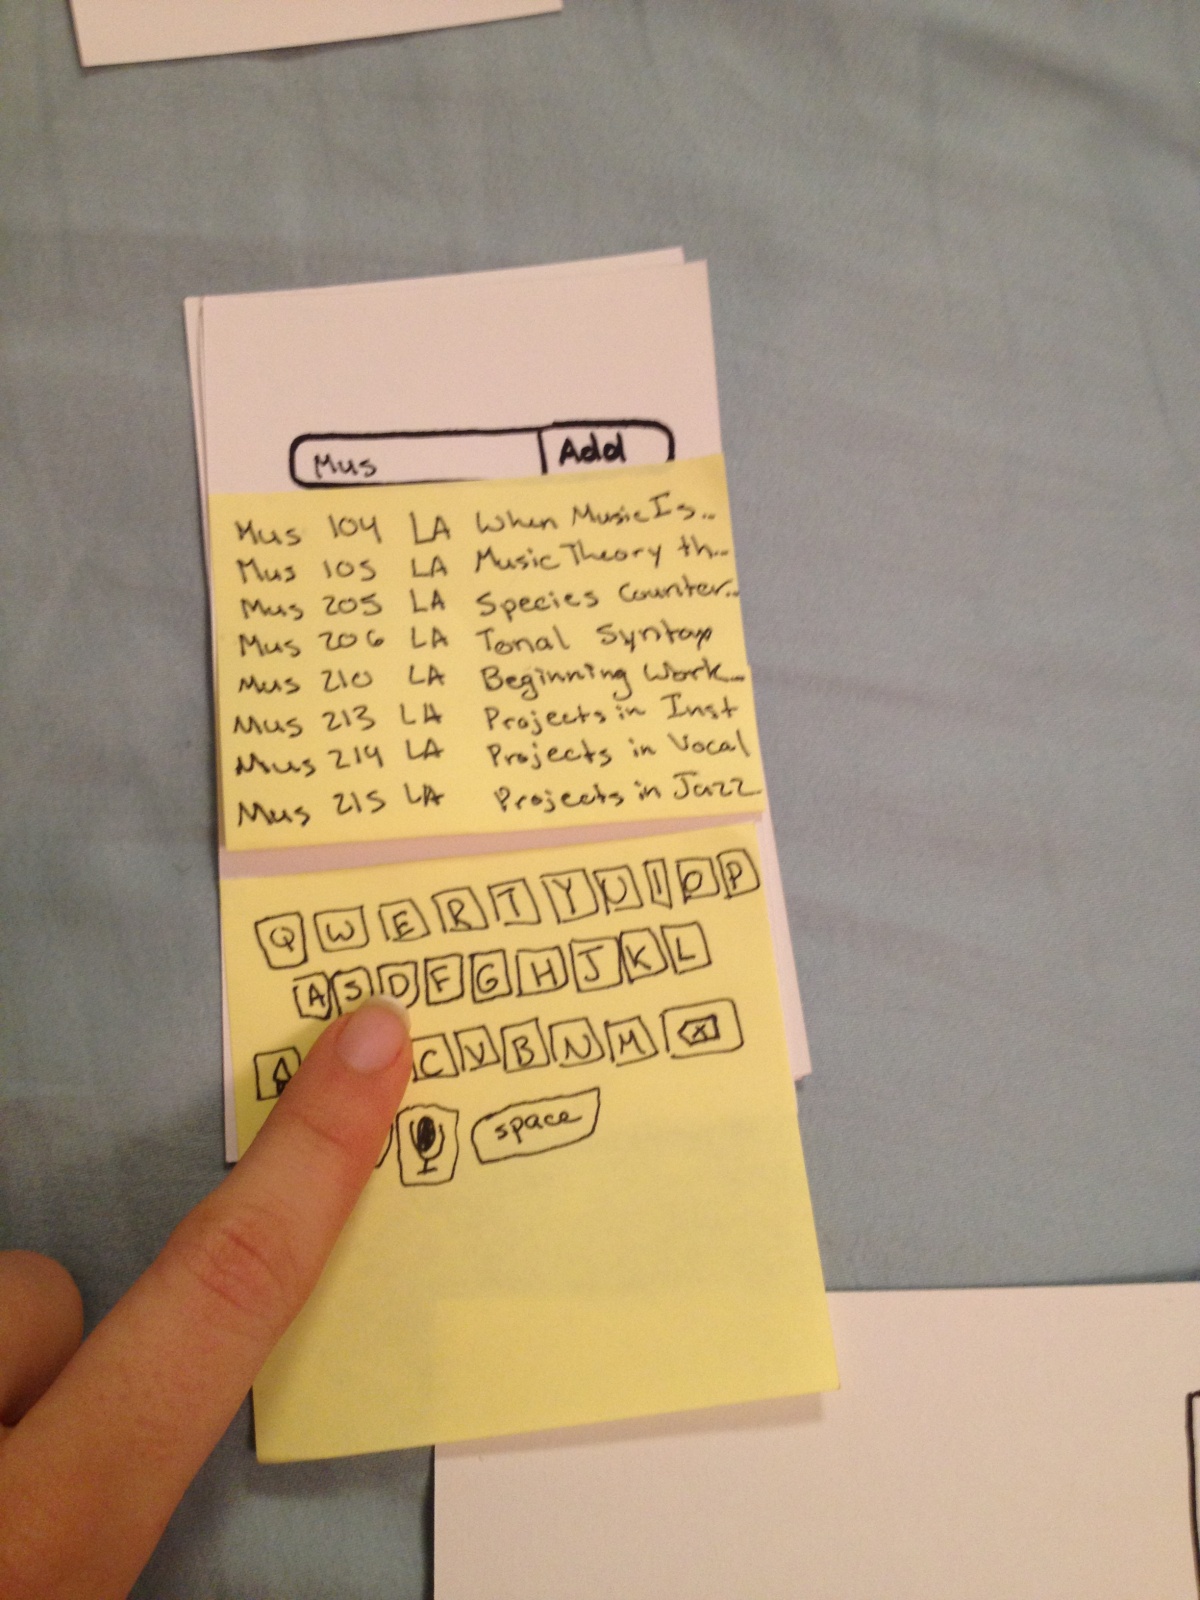 Mus Add
Mus 104 LA When Music Is..
Mus 105 LA Music Theory th...
Mus 205 LA Species Counter..
Mus 206 LA Tonal Syntax
Mus 210 LA Beginning Work...
Mus 213 LA Projects in Inst
Mus 214 LA Projects in Vocal
Mus 215 LA Projects in Jazz
Q W E R T Y U I O P
A S D F G H J K L
C V B N M
space